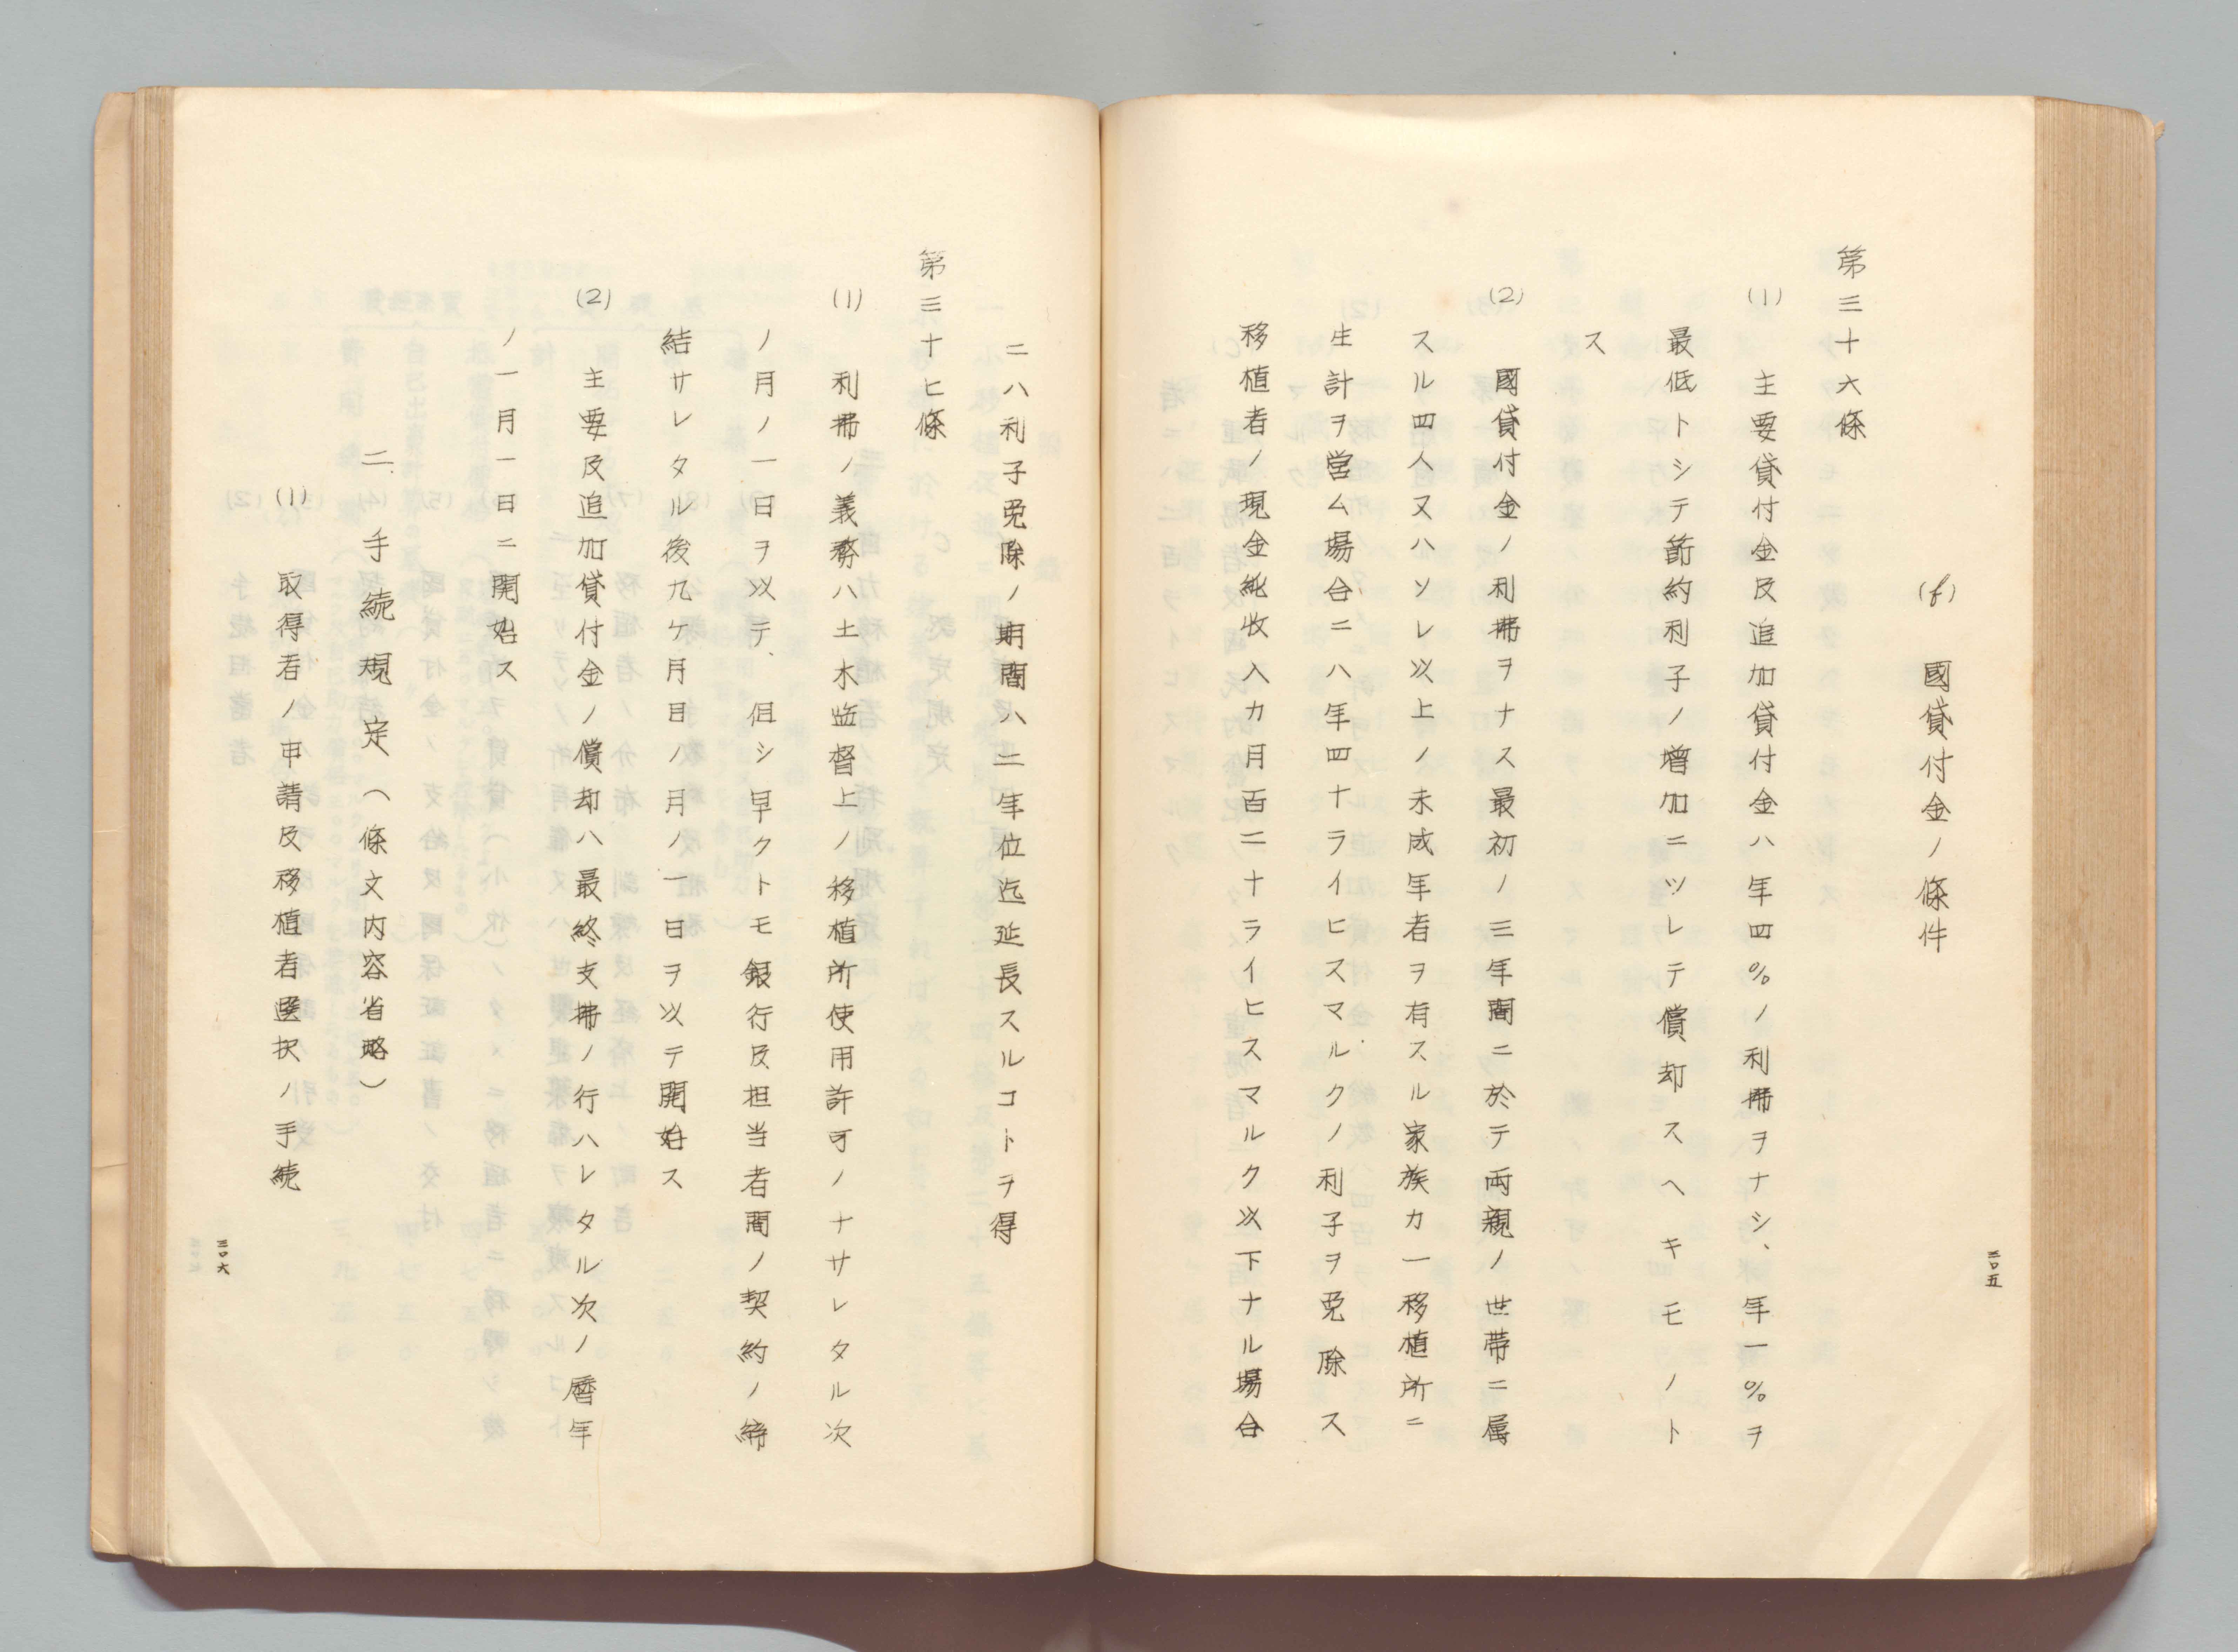 (f) 國貸付金ノ條件
第三十六條
(1) 主要貸付金及追加貸付金ハ年四％ノ利拂ヲナシ、年一％ヲ
最低トシテ節約利子ノ増加ニツレテ償却スヘキモノト
ス
(2) 國貸付金ノ利拂ヲナス最初ノ三年間ニ於テ両親ノ世帯ニ属
スル四人又ハソレ以上ノ未成年者ヲ有スル家族カ一移植所ニ
生計ヲ営ム場合ニハ年四十ライヒスマルクノ利子ヲ免除ス
移植者ノ現金純收入カ月百二十ライヒスマルク以下ナル場合
三〇五
ニハ利子免除ノ期間ハ二年位迄延長スルコトヲ得
第三十七條
(1) 利拂ノ義務ハ土木監督上ノ移植所使用許可ノナサレタル次
ノ月ノ一日ヲ以テ、但シ早クトモ銀行及担当者間ノ契約ノ締
結サレタル後九ケ月目ノ月ノ一日ヲ以テ開始ス
(2) 主要及追加貸付金ノ償却ハ最終支拂ノ行ハレタル次ノ暦年
ノ一月一日ニ開始ス
二、手続規定（條文内容省略）
(1) 取得者ノ申請及移植者選択ノ手続
三〇六